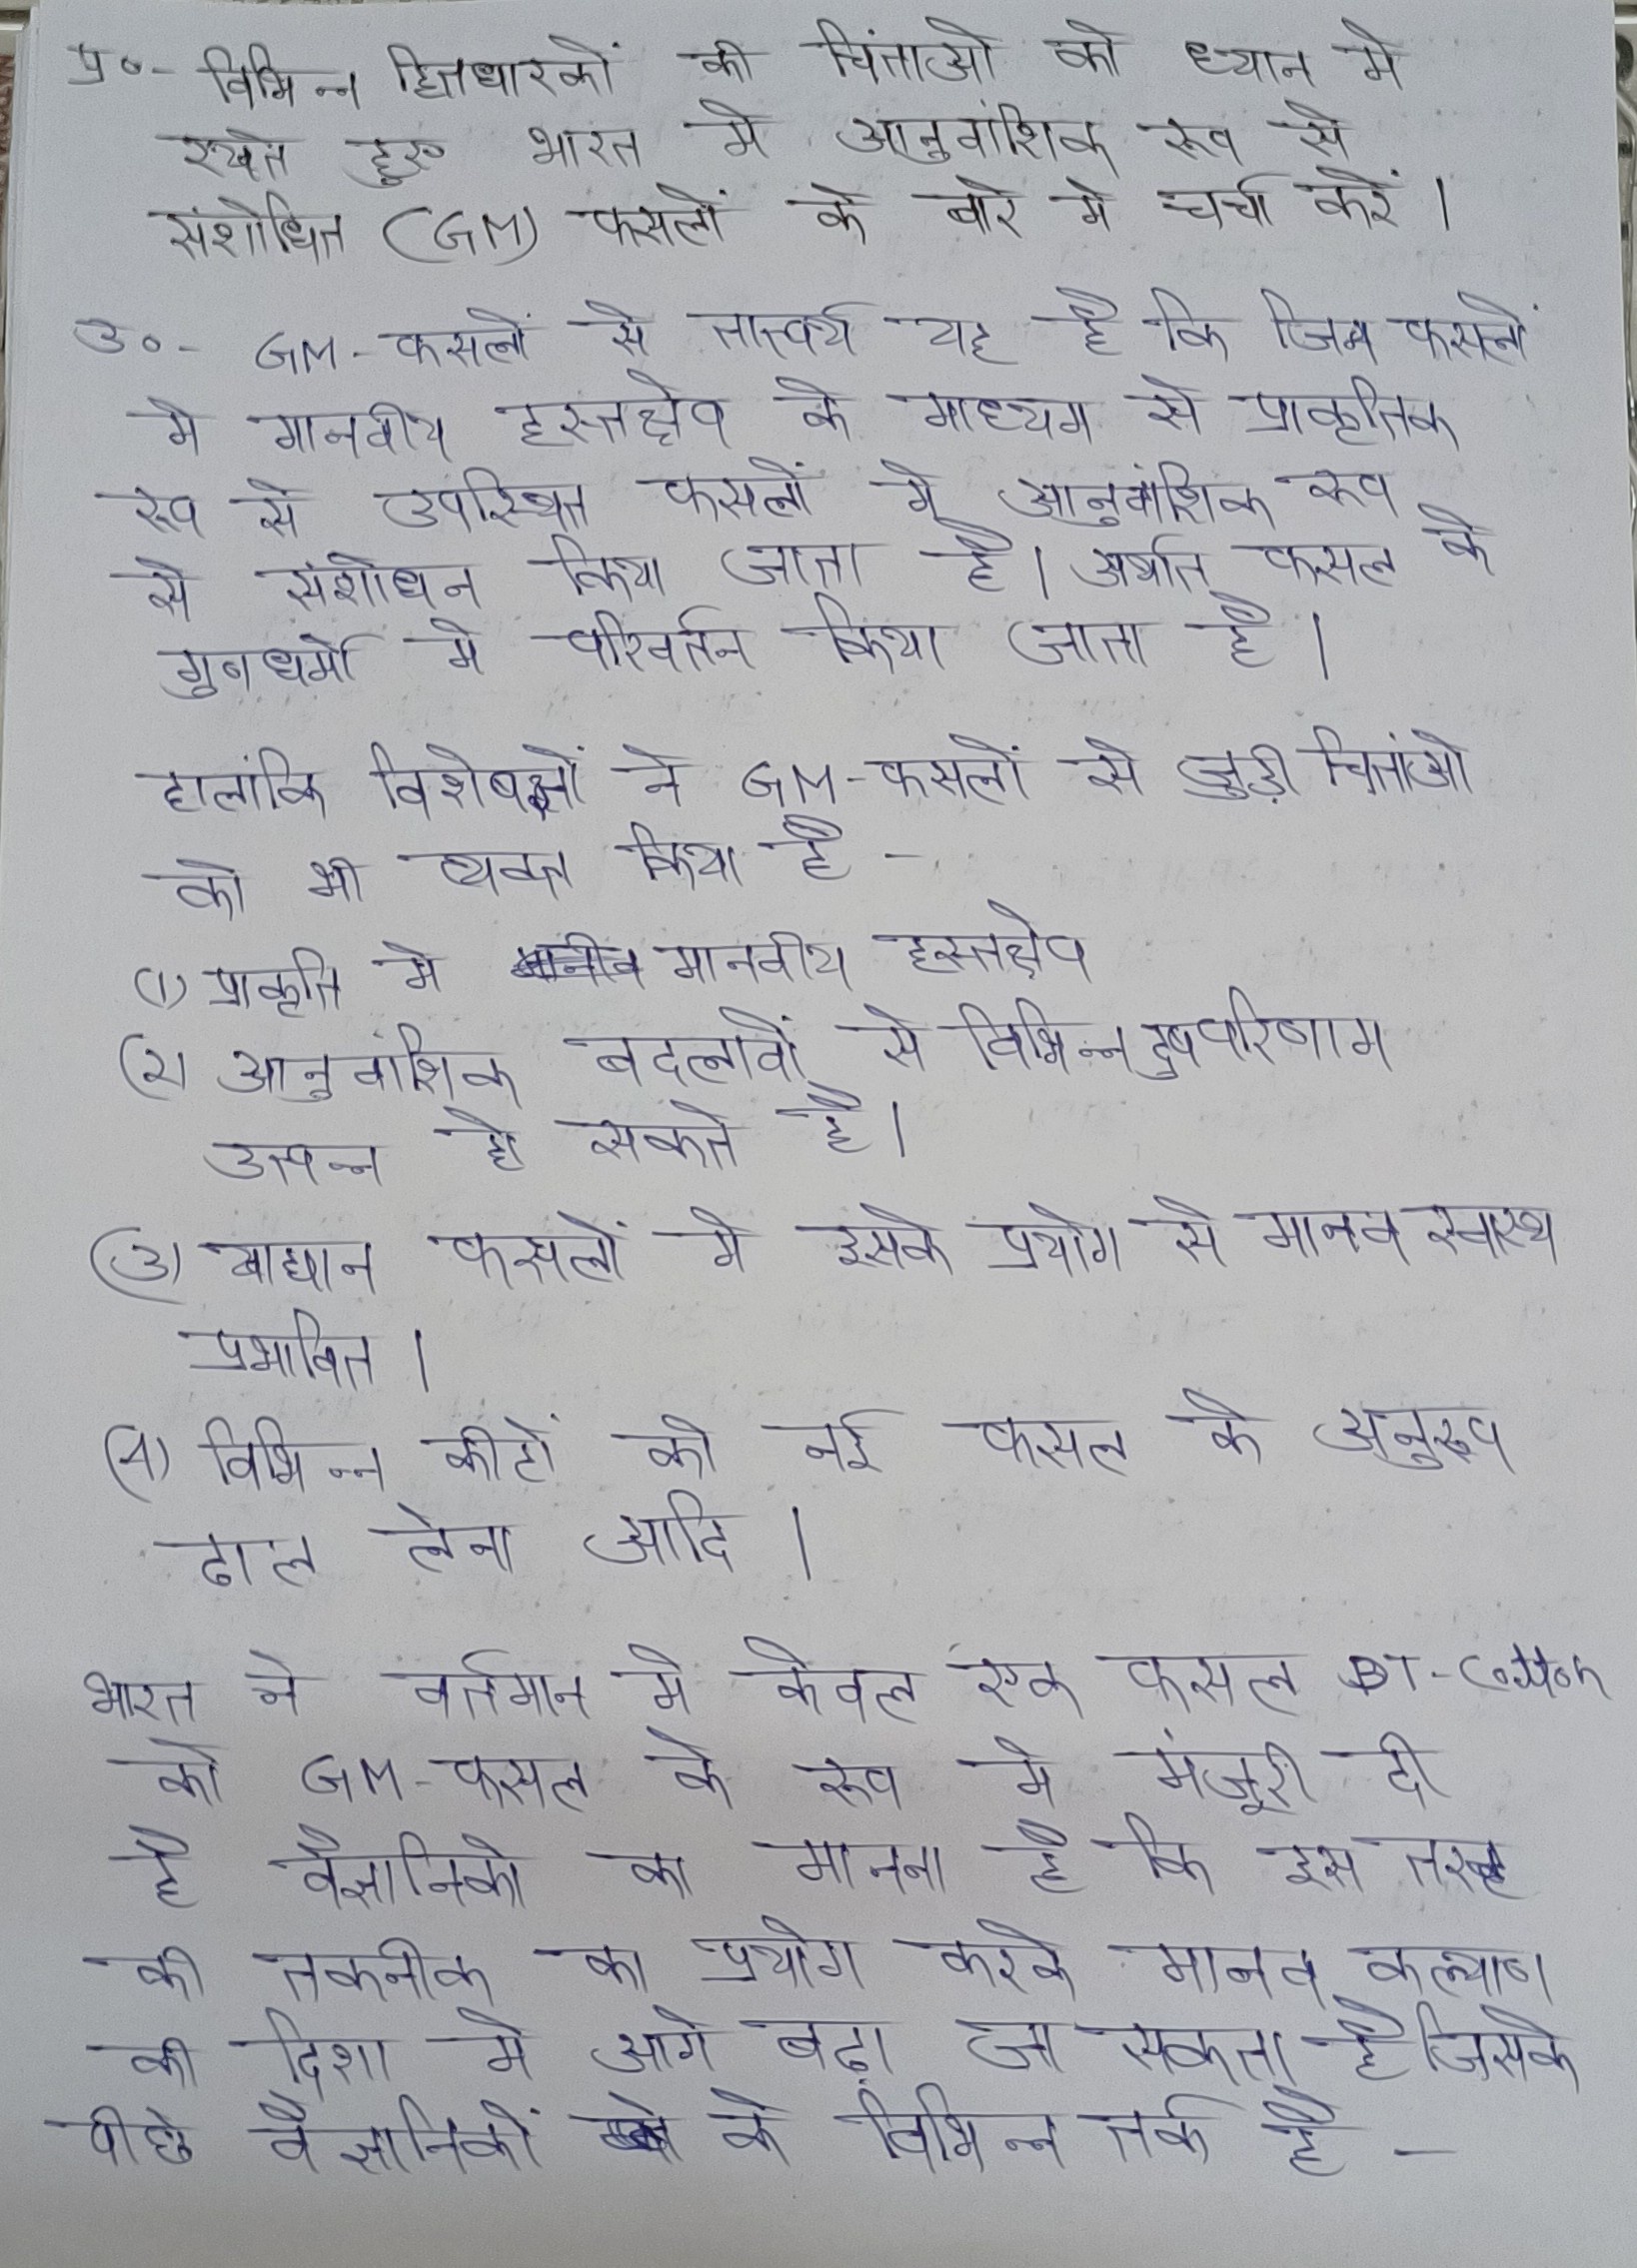 प्र०- विभिन्न हितधारकों की चिंताओ को ध्यान मे
रखते हुए भारत मे आनुवांशिक रूप से
संशोधित (GM) फसलों के बारे मे चर्चा करें।
उ०- GM-फसलों से तात्पर्य यह है कि जिन फसलों
मे मानवीय हस्तक्षेप के माध्यम से प्राकृतिक
रूप से उपस्थित फसलों मे आनुवांशिक रूप
से संशोधन किया जाता है। अर्थात फसल के
गुणधर्मो मे परिवर्तन किया जाता है।
हालांकि विशेषज्ञों ने GM-फसलों से जुड़ी चिंताओ
को भी व्यक्त किया है -
(1) प्राकृति मे मानवीय हस्तक्षेप
(2) आनुवांशिक बदलावों से विभिन्न दुषपरिणाम
उत्पन्न हो सकते है।
(3) खाद्यान फसलों मे इसके प्रयोग से मानव स्वास्थ
प्रभावित।
(4) विभिन्न कीटों को नई फसल के अनुरूप
ढाल लेना आदि।
भारत ने वर्तमान मे केवल एक फसल BT-Cotton
को GM-फसल के रूप मे मंजूरी दी
है वैज्ञानिको का मानना है कि इस तरह
की तकनीक का प्रयोग करके मानव कल्याण
की दिशा मे आगे बढ़ा जा सकता है जिसके
पीछे वैज्ञानिकों के विभिन्न तर्क है -